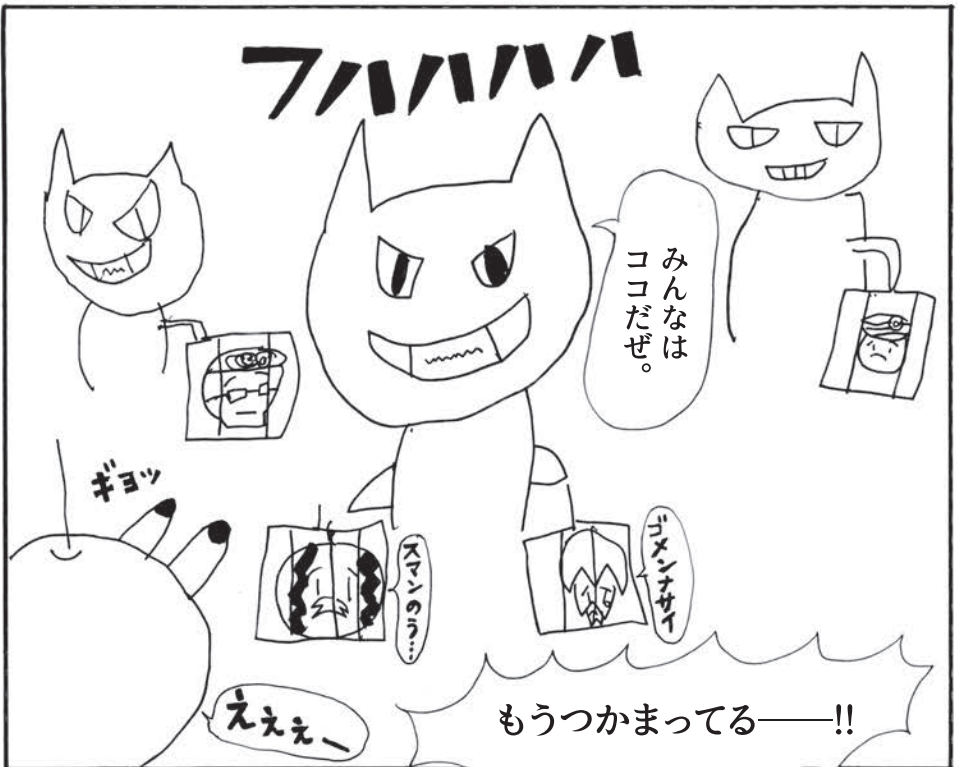 フハハハハ
みんなは
ココだぜ。
ギョッ
スマンのう…
ゴメンナサイ
えぇぇー
もうつかまってる――!!